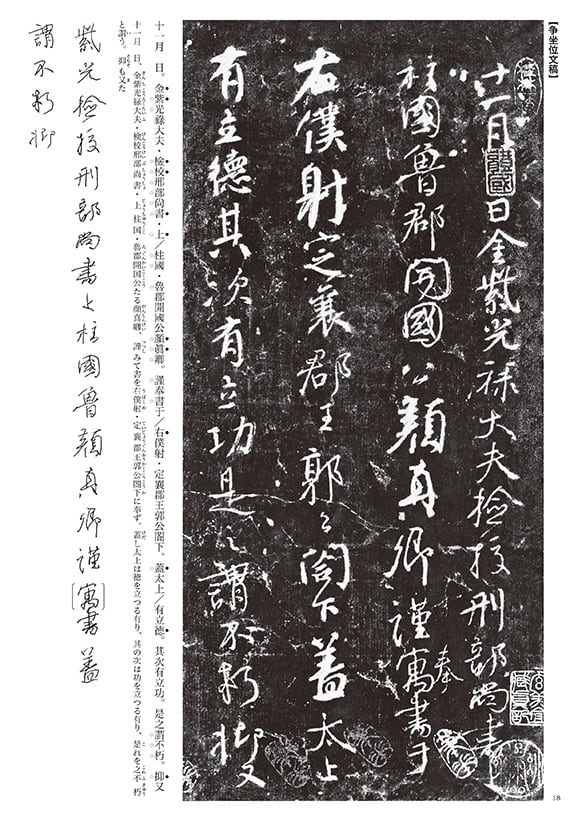 【争坐位文稿】
十一月日金紫光祿大夫檢挍刑部尚書上
柱國魯郡開國公顏真卿謹奉寓書于
右僕射定襄郡王郭公閤下蓋太上
有立德其次有立功是之謂不朽抑又
十一月　日。金紫光祿大夫・檢校刑部尙書・上／柱國・魯郡開國公顏眞卿。謹奉書于／右僕射・定襄郡王郭公閤下。蓋太上／有立德。其次有立功。是之謂不朽。抑又
十一月　日、金紫光禄大夫・検校刑部尚書・上柱国・魯郡開国公たる顔真卿、謹みて書を右僕射・定襄郡王郭公閤下に奉ず。蓋し太上は徳を立つる有り、其の次は功を立つる有り、是れを之不朽
と謂う。抑も又た
紫光檢挍刑部尚書上柱國魯顏真卿謹［寓書］蓋
謂不朽抑
18